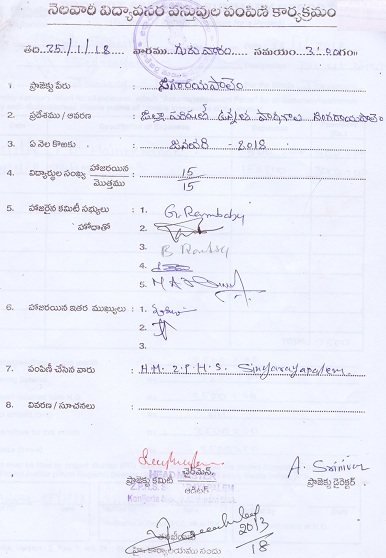 నెలవారి విద్యావసర వస్తువుల పంపిణీ కార్యక్రమం
తేది. 25/1/18. వారము గురువారం. సమయం: 3:30గం॥
1. ప్రాజెక్టు పేరు : సింగరాయపాలెం
2. ప్రదేశము / ఆవరణ : జిల్లా పరిషత్ ఉన్నత పాఠశాల సింగరాయపాలెం
3. ఏ నెల కొఱకు : జనవరి - 2018
4. విద్యార్థుల సంఖ్య హాజరయిన : 15
మొత్తము 15
5. హాజరైన కమిటీ సభ్యులు : 1. G. Rambaby
హోదాతో 2.
3. B Rambay
4.
5.
6. హాజరయిన ఇతర ముఖ్యులు : 1.
2.
3.
7. పంపిణీ చేసిన వారు : H.M. Z.P.H.S. Singarayapalem
8. వివరణ / సూచనలు :
A. Srinivas
ప్రాజెక్టు కమిటీ చైర్‌మెన్ ప్రాజెక్టు డైరెక్టర్
ఆడిటర్
HEAD MASTER
Konijerla
2013
18